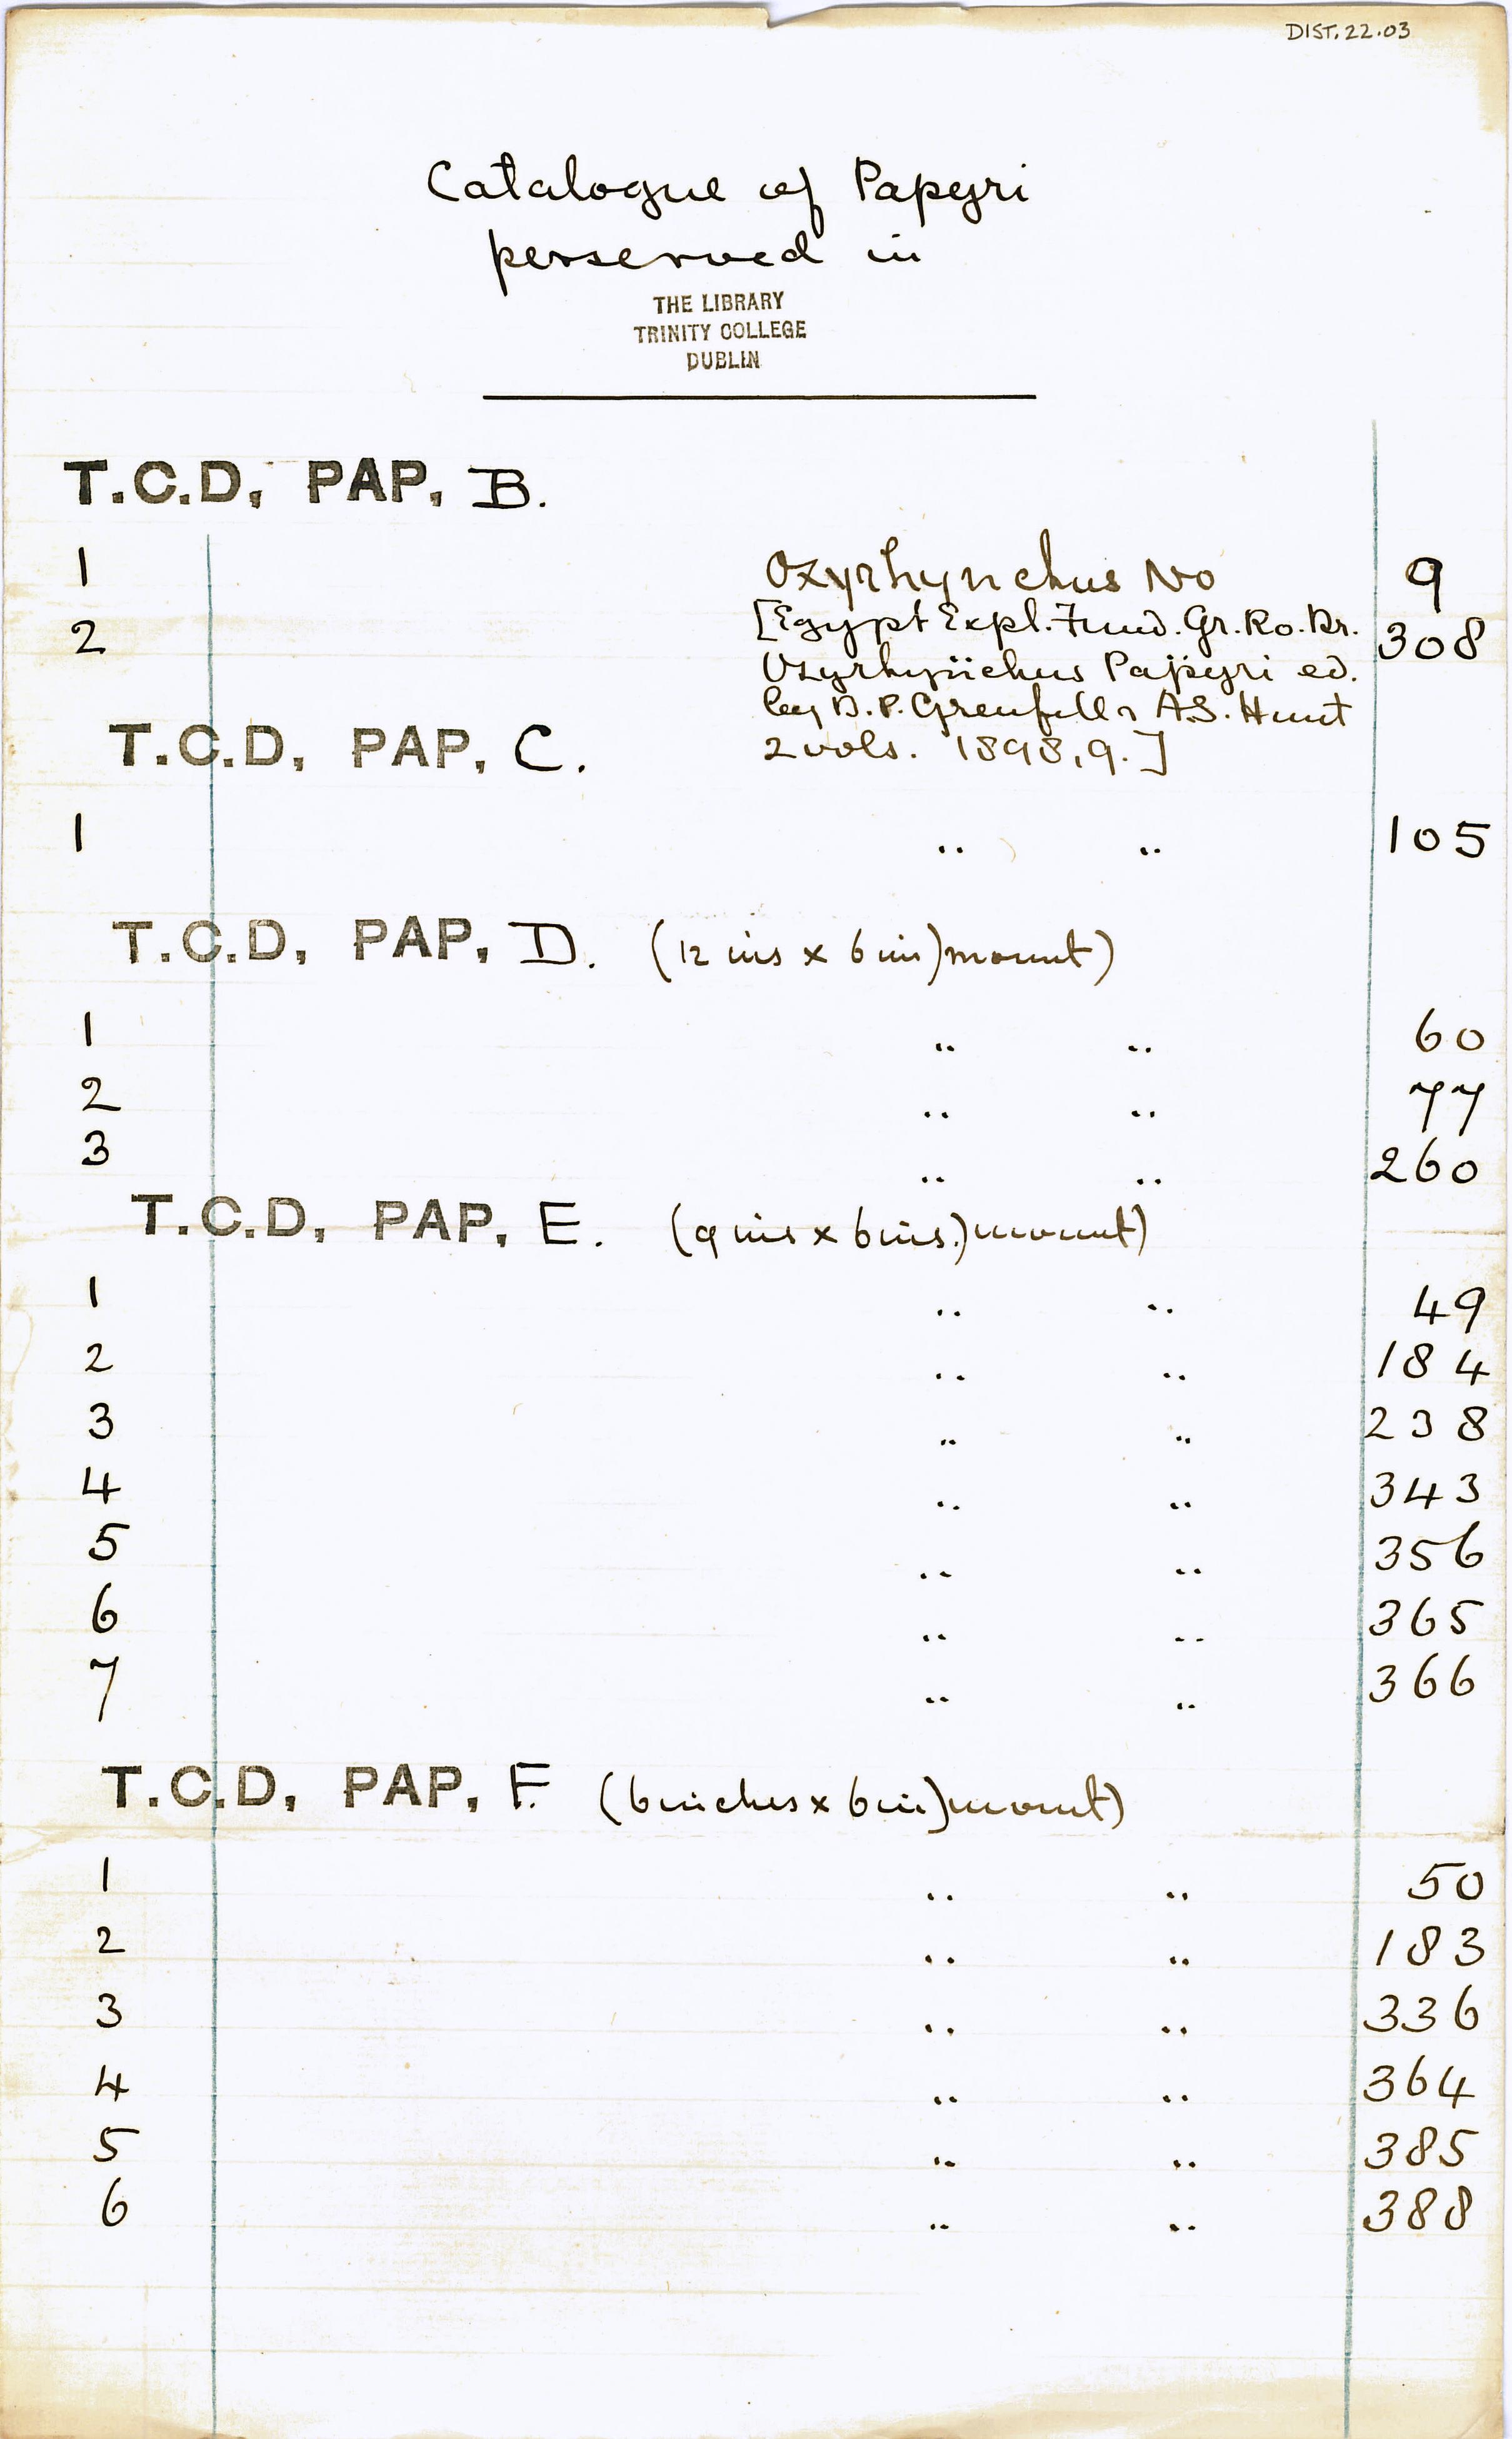 DIST. 22.03
Catalogue of Papyri
perserved in
THE LIBRARY
TRINITY COLLEGE
DUBLIN
T.C.D, PAP, B.
1 Oxyrhynchus No 9
2 [Egypt Expl. Fund. Gr. Ro. Br. 308
Oxyrhynchus Papyri ed.
by B. P. Grenfell & A.S. Hunt
2 vols. 1898, 9.]
T.C.D, PAP, C.
1 " " 105
T.C.D, PAP, D. (12 ins x 6 in) mount)
1 " " 60
2 " " 77
3 " " 260
T.C.D, PAP, E. (9 ins x 6 ins.) mount)
1 " " 49
2 " " 184
3 " " 238
4 " " 343
5 " " 356
6 " " 365
7 " " 366
T.C.D, PAP, F. (6 inches x 6 in) mount)
1 " " 50
2 " " 183
3 " " 336
4 " " 364
5 " " 385
6 " " 388